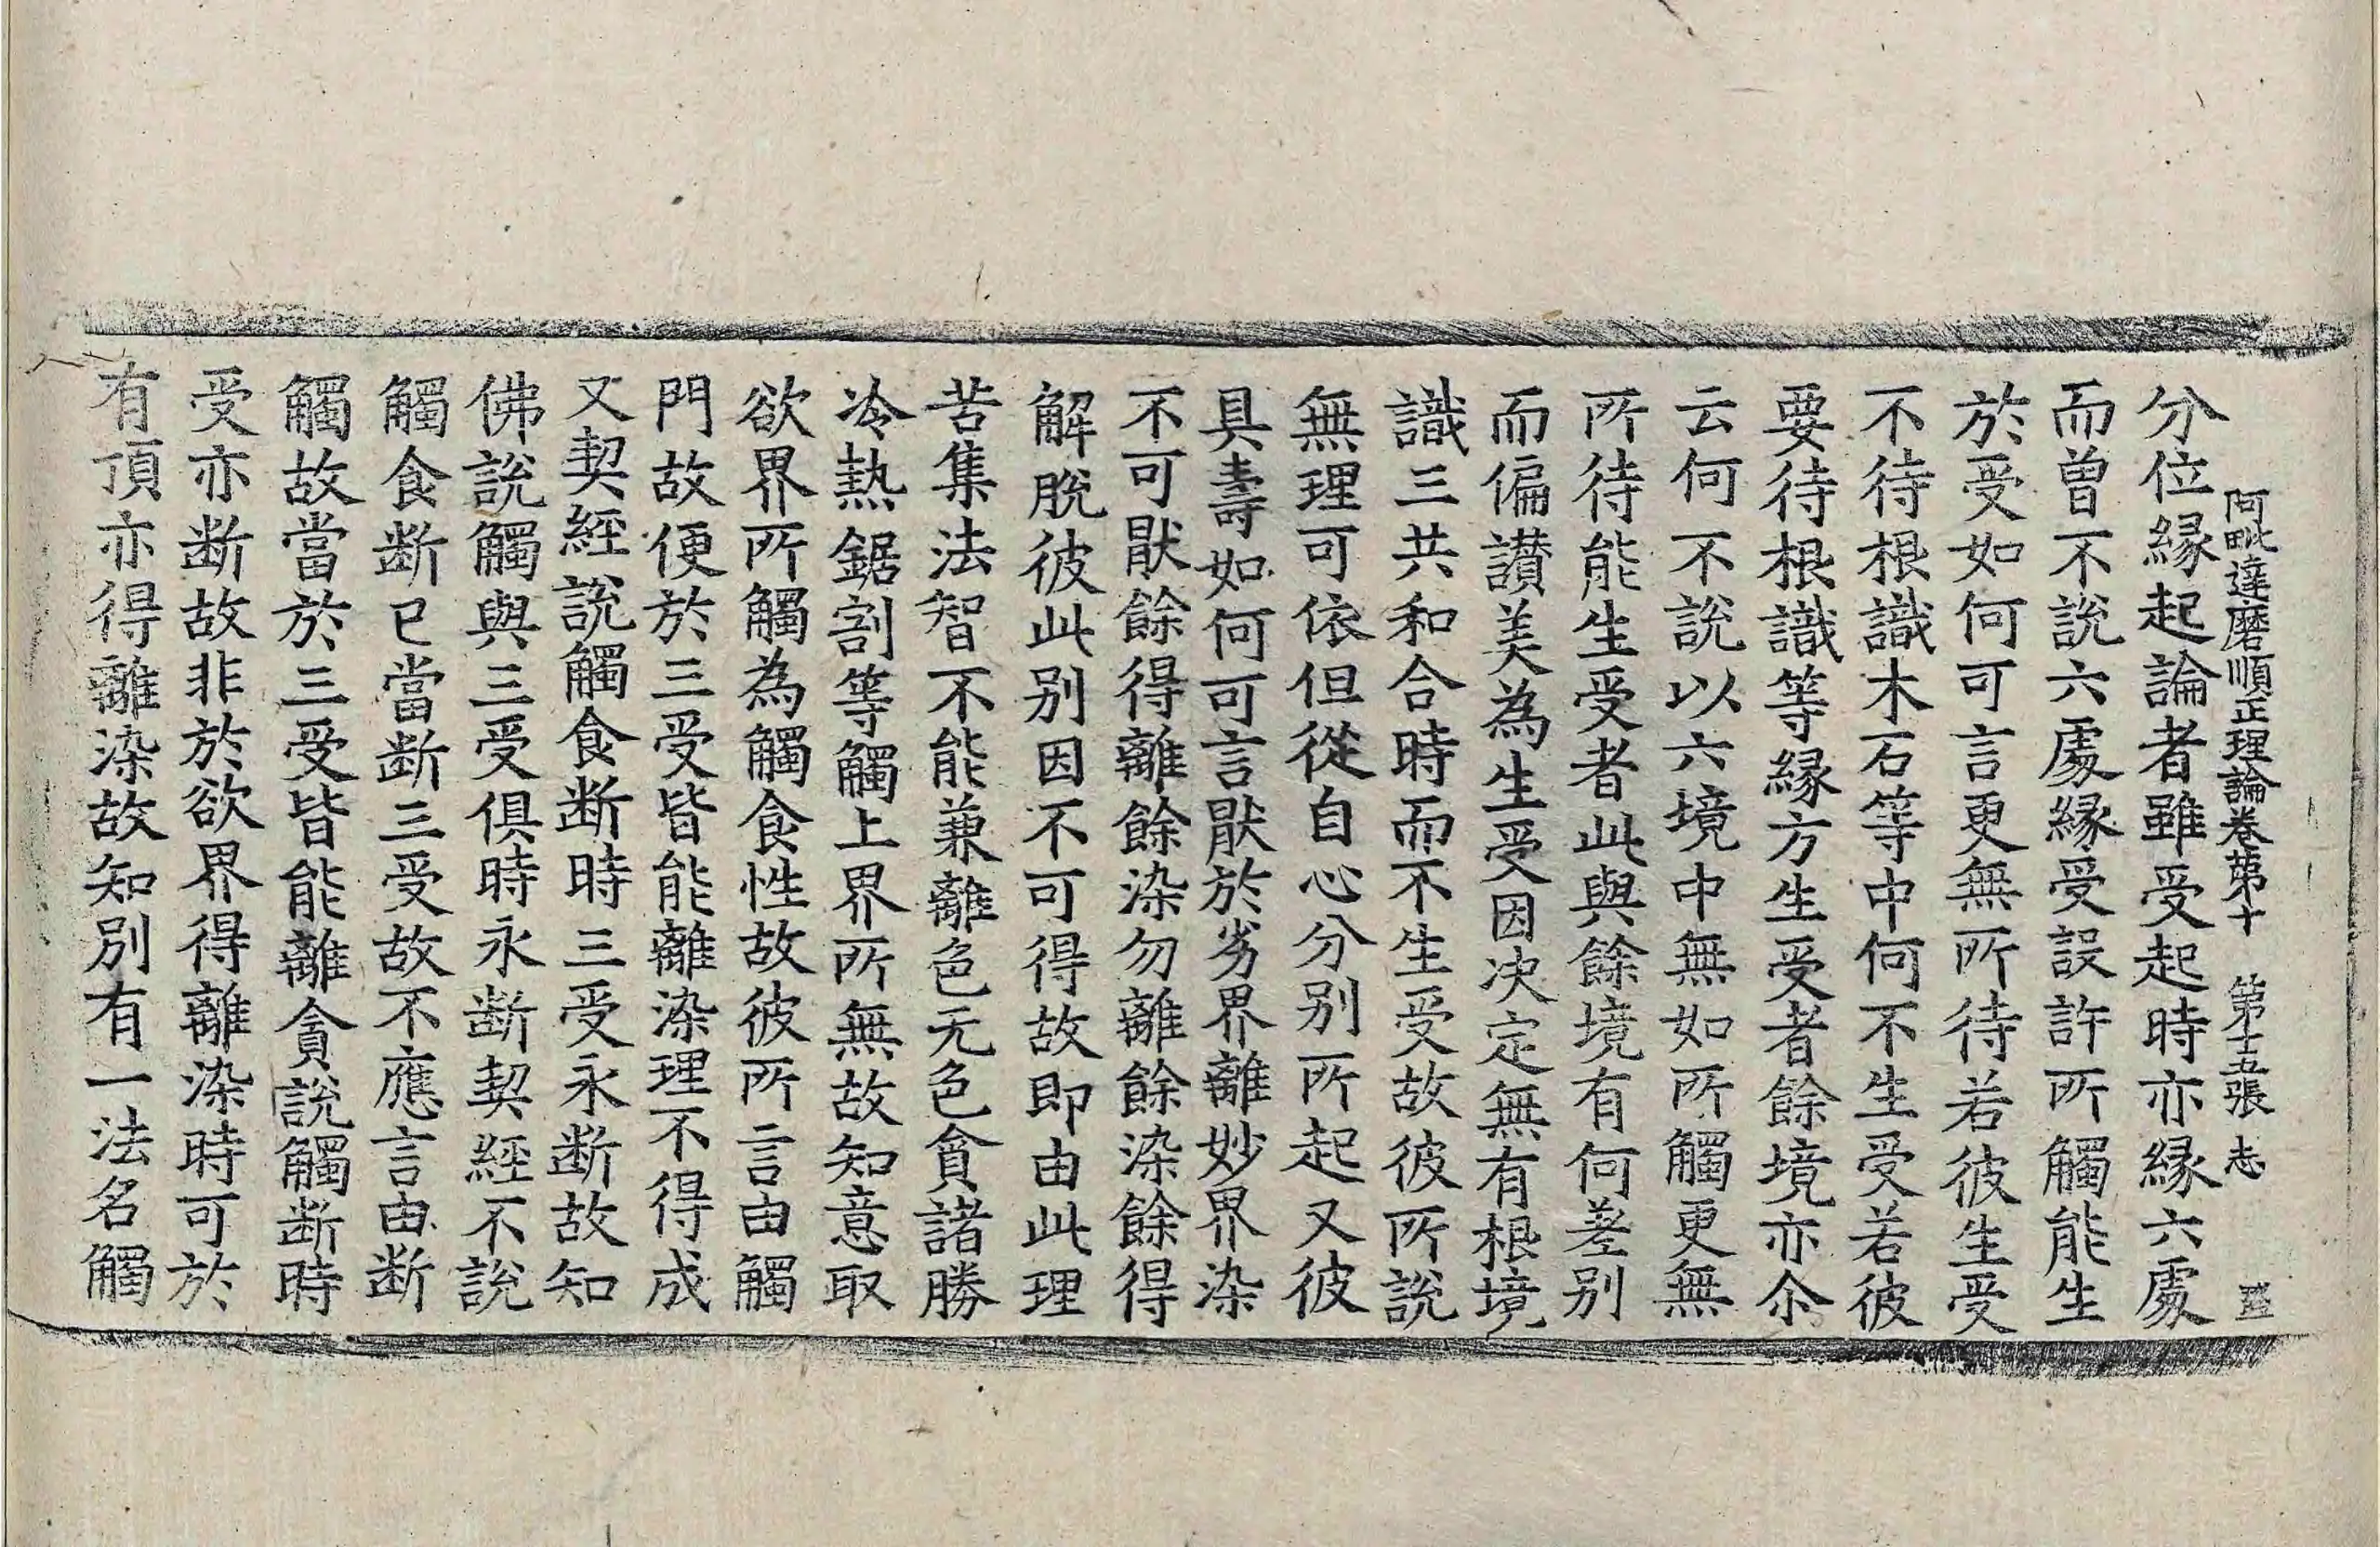 阿毗達磨順正理論卷第十　第十五張　志
分位緣起論者雖受起時亦緣六處
而曾不說六處緣受設許所觸能生
於受如何可言更無所待若彼生受
不待根識木石等中何不生受若彼
要待根識等緣方生受者餘境亦尒
云何不說以六境中無如所觸更無
所待能生受者此與餘境有何差別
而偏讃美為生受因决定無有根境
識三共和合時而不生受故彼所說
無理可依但從自心分别所起又彼
具壽如何可言猒於劣界離妙界染
不可猒餘得離餘染勿離餘染餘得
解脫彼此别因不可得故即由此理
苦集法智不能兼離色无色貪諸勝
冷熱鋸割等觸上界所無故知意取
欲界所觸為觸食性故彼所言由觸
門故便於三受皆能離染理不得成
又契經說觸食断時三受永断故知
佛說觸與三受俱時永断契經不說
觸食断已當断三受故不應言由断
觸故當於三受皆能離貪說觸断時
受亦断故非於欲界得離染時可於
有頂亦得離染故知別有一法名觸